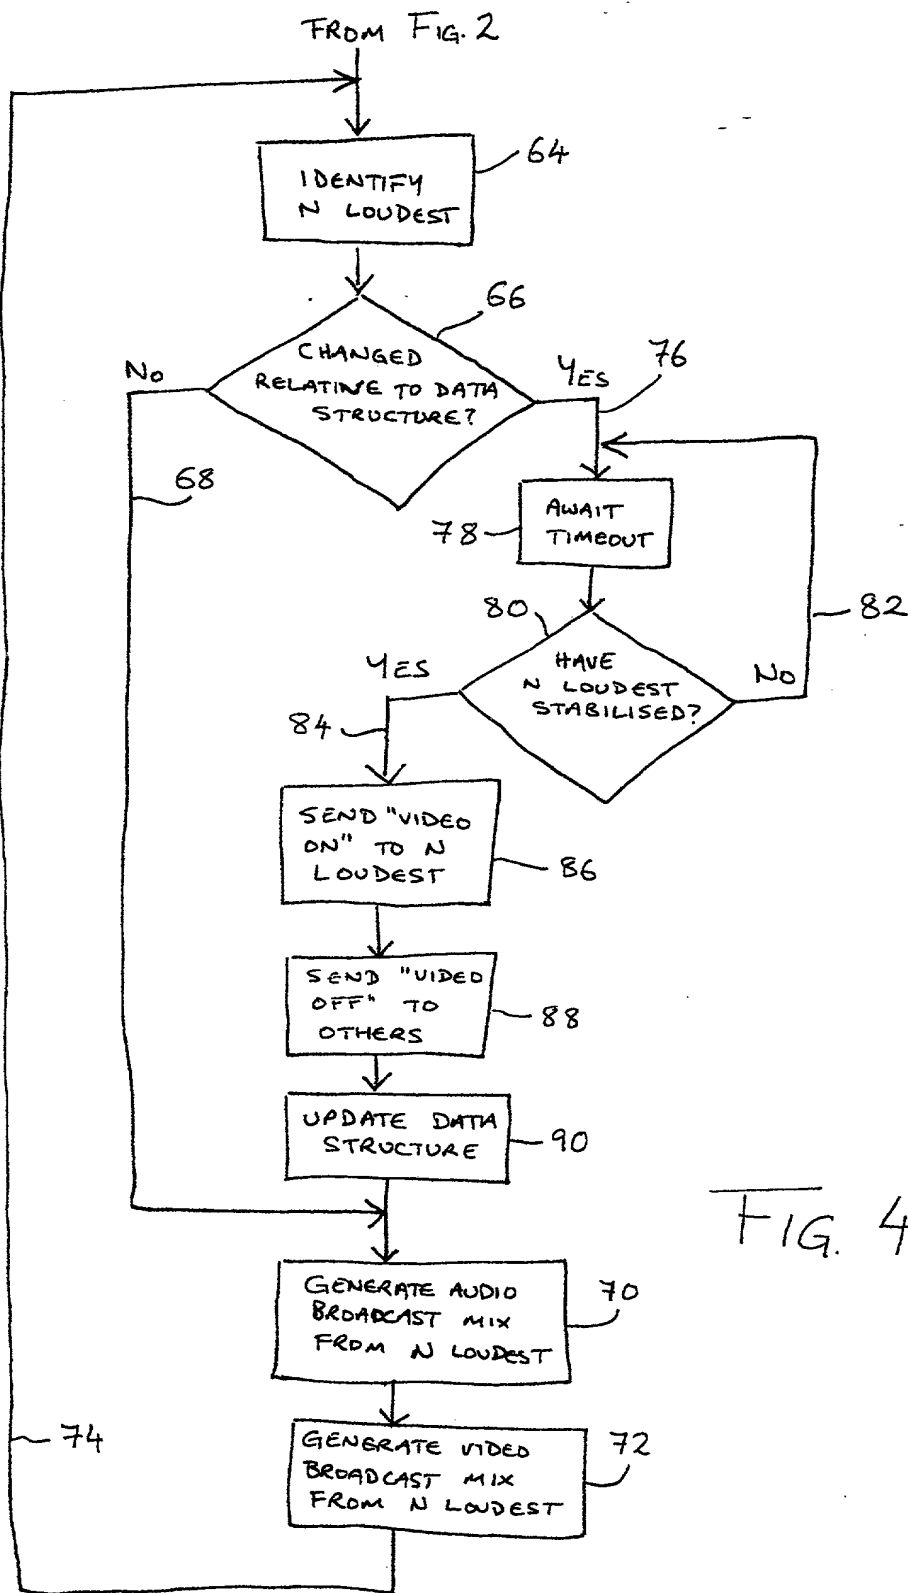 FROM FIG. 2
64
IDENTIFY
N LOUDEST
66
CHANGED
RELATIVE TO DATA
STRUCTURE?
No
YES
76
68
AWAIT
TIMEOUT
78
80
82
HAVE
N LOUDEST
STABILISED?
YES
No
84
SEND "VIDEO
ON" TO N
LOUDEST
86
SEND "VIDEO
OFF" TO
OTHERS
88
UPDATE DATA
STRUCTURE
90
FIG. 4
GENERATE AUDIO
BROADCAST MIX
FROM N LOUDEST
70
74
GENERATE VIDEO
BROADCAST MIX
FROM N LOUDEST
72